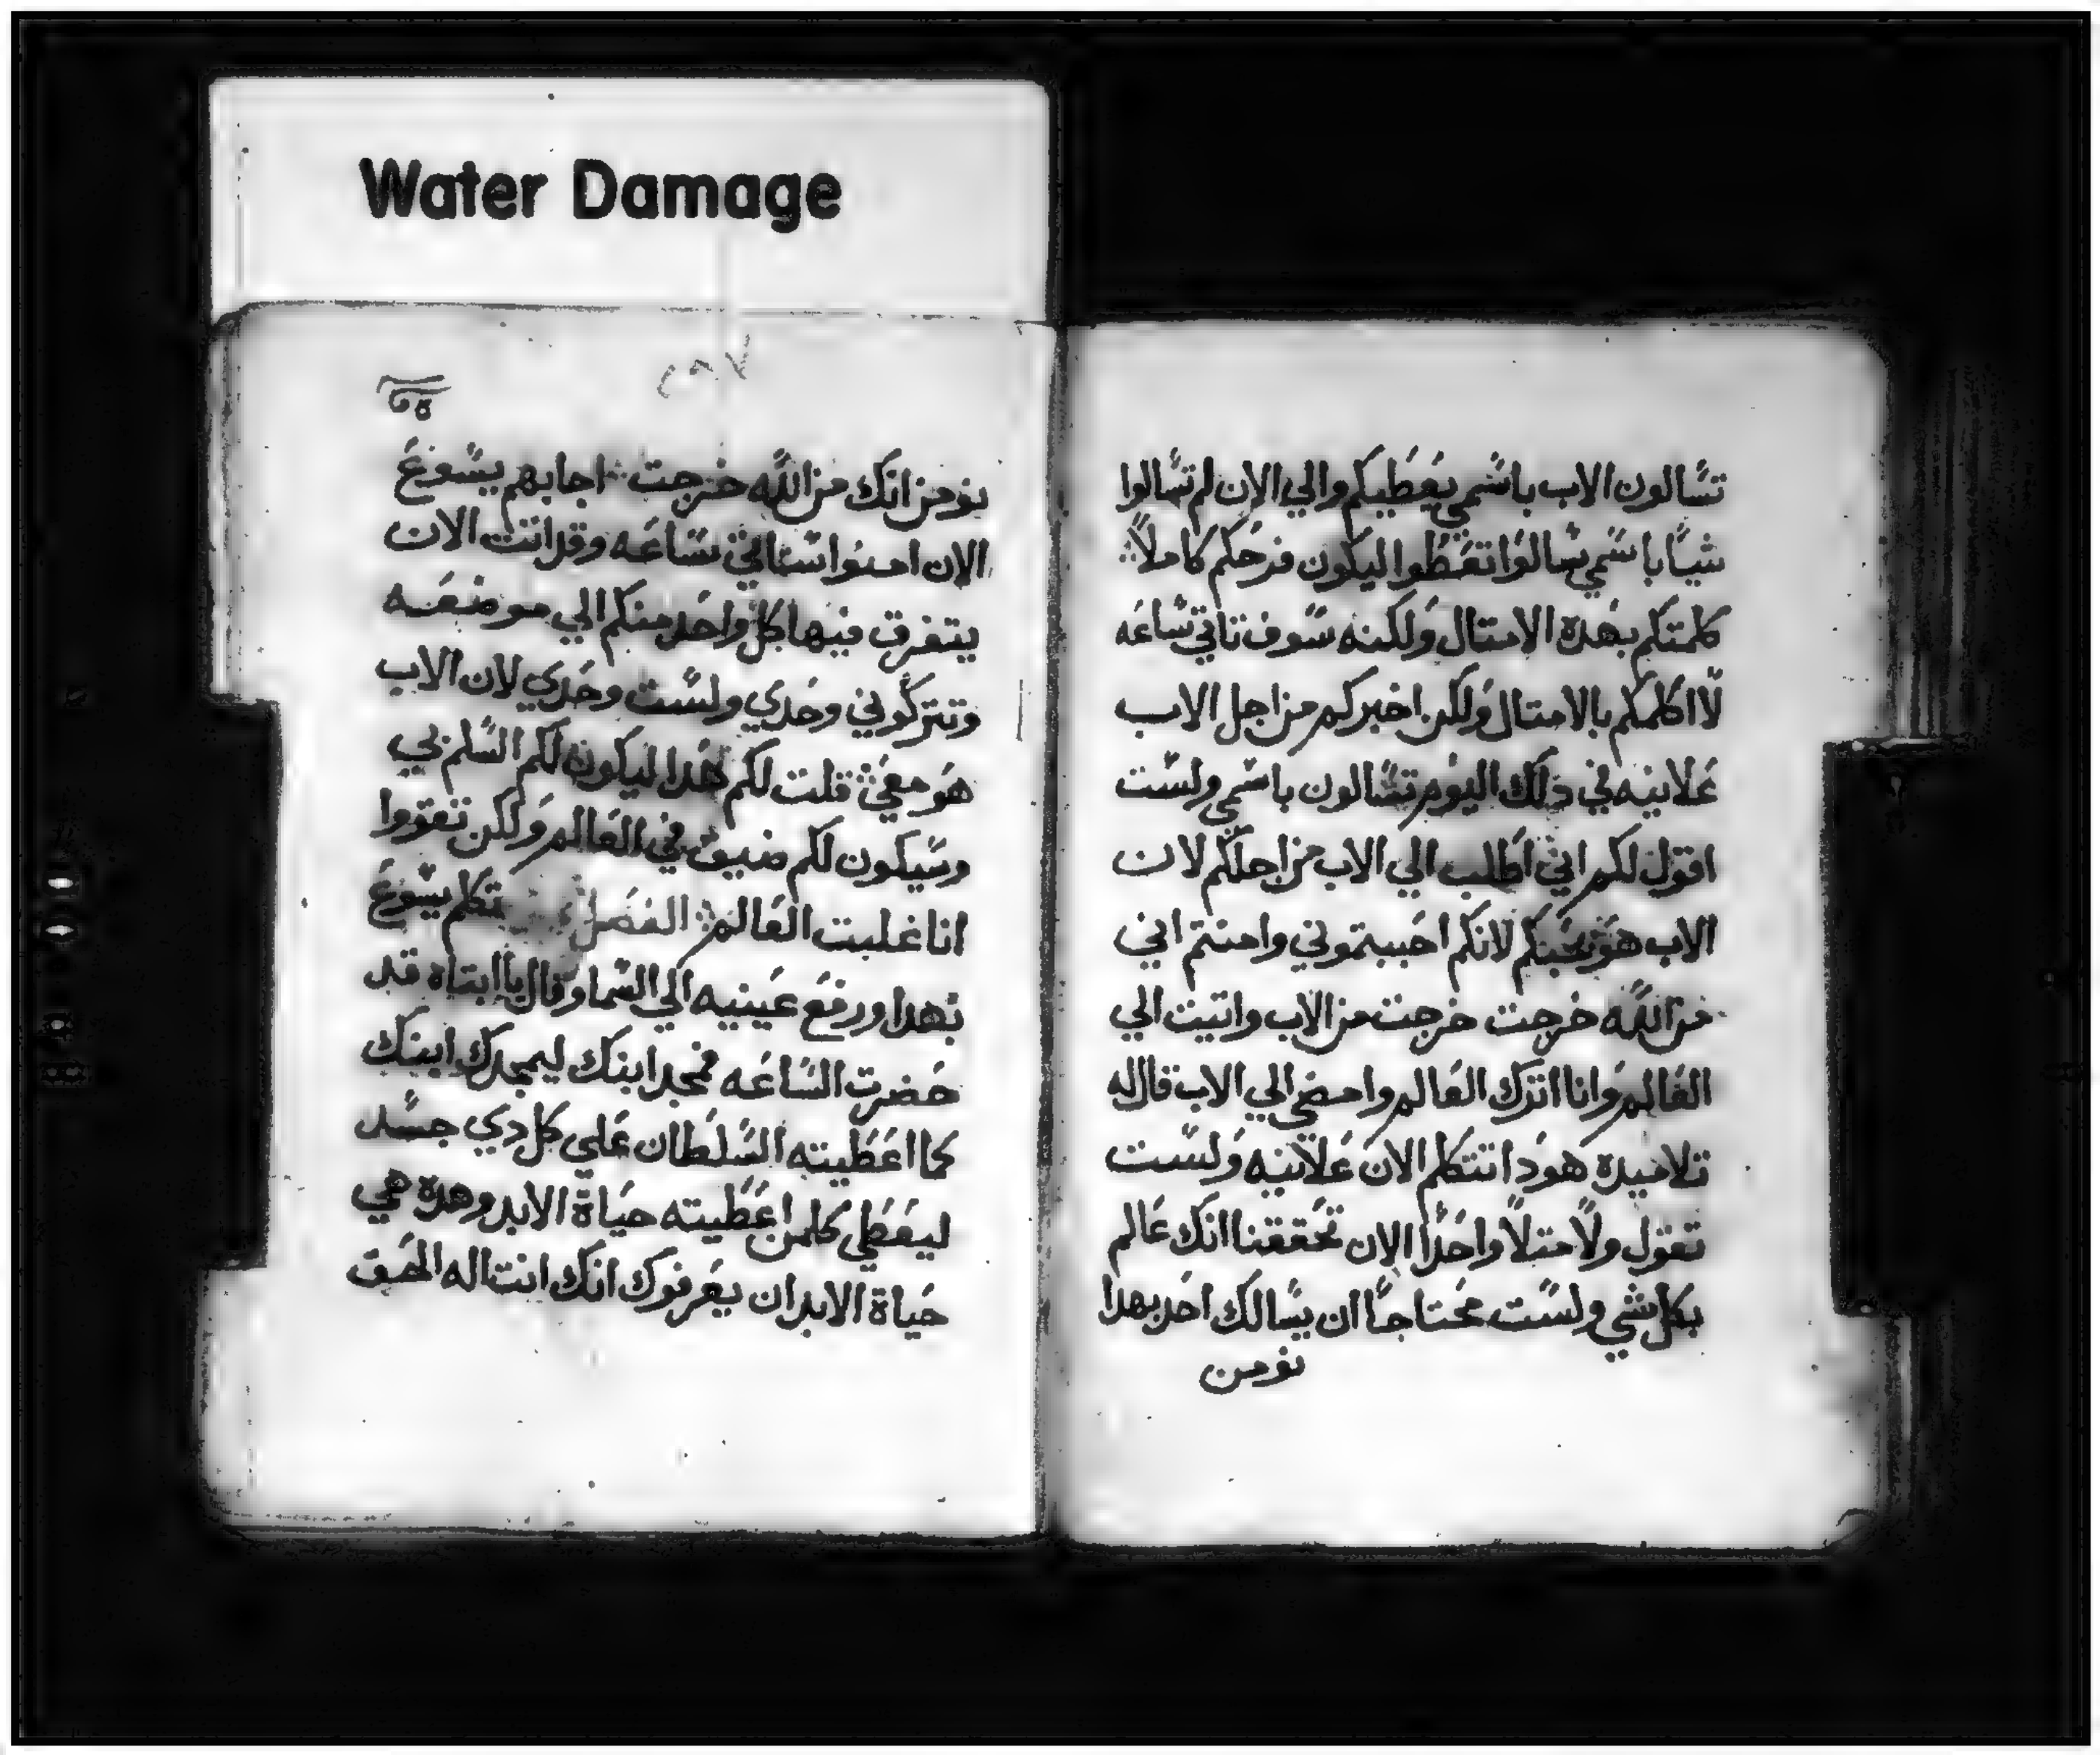 Water Damage
٢٩٧
تسالون الاب باسمي يعطيكم والي الان لم تسالوا
شيًا باسمي سالوا تعطوا ليكون فرحكم كاملاً
كلمتكم بهده الامتال ولكنه سوف تاتي ساعه
لا اكلمكم بالامتال ولكن اخبركم من اجل الاب
علانيه في دلك اليوم تسالون باسمي ولست
اقول لكم اني اطلب الي الاب من اجلكم لان
الاب هو يحبكم لانكم احببتموني وامنتم اني
من الله خرجت خرجت من الاب واتيت الي
العالم وانا اترك العالم وامضي الي الاب قال له
تلاميده هودا تتكلم الان علانيه ولست
تقول ولا متلاً واحدًا الان تحققنا انك عالم
بكل شي ولست محتاجًا ان يسالك احد بهدا
نومن
نومن انك من الله خرجت اجابهم يسوع
الان امنوا ستاتي ساعه وقد اتت الان
يتفرق فيها كل واحد منكم الي موضعه
وتتركوني وحدي ولست وحدي لان الاب
هو معي قلت لكم هدا ليكون لكم السلم بي
وسيكون لكم ضيق في العالم ولكن تقووا
انا غلبت العالم الفصل تكلم يسوع
بهدا ورفع عينيه الي السما وقال يا ابتاه قد
حضرت الساعه فمجد ابنك ليمجدك ابنك
كما اعطيته السلطان علي كل دي جسد
ليعطي كلمن اعطيته حياة الابد وهده هي
حياة الابد ان يعرفوك انك انت اله الحق